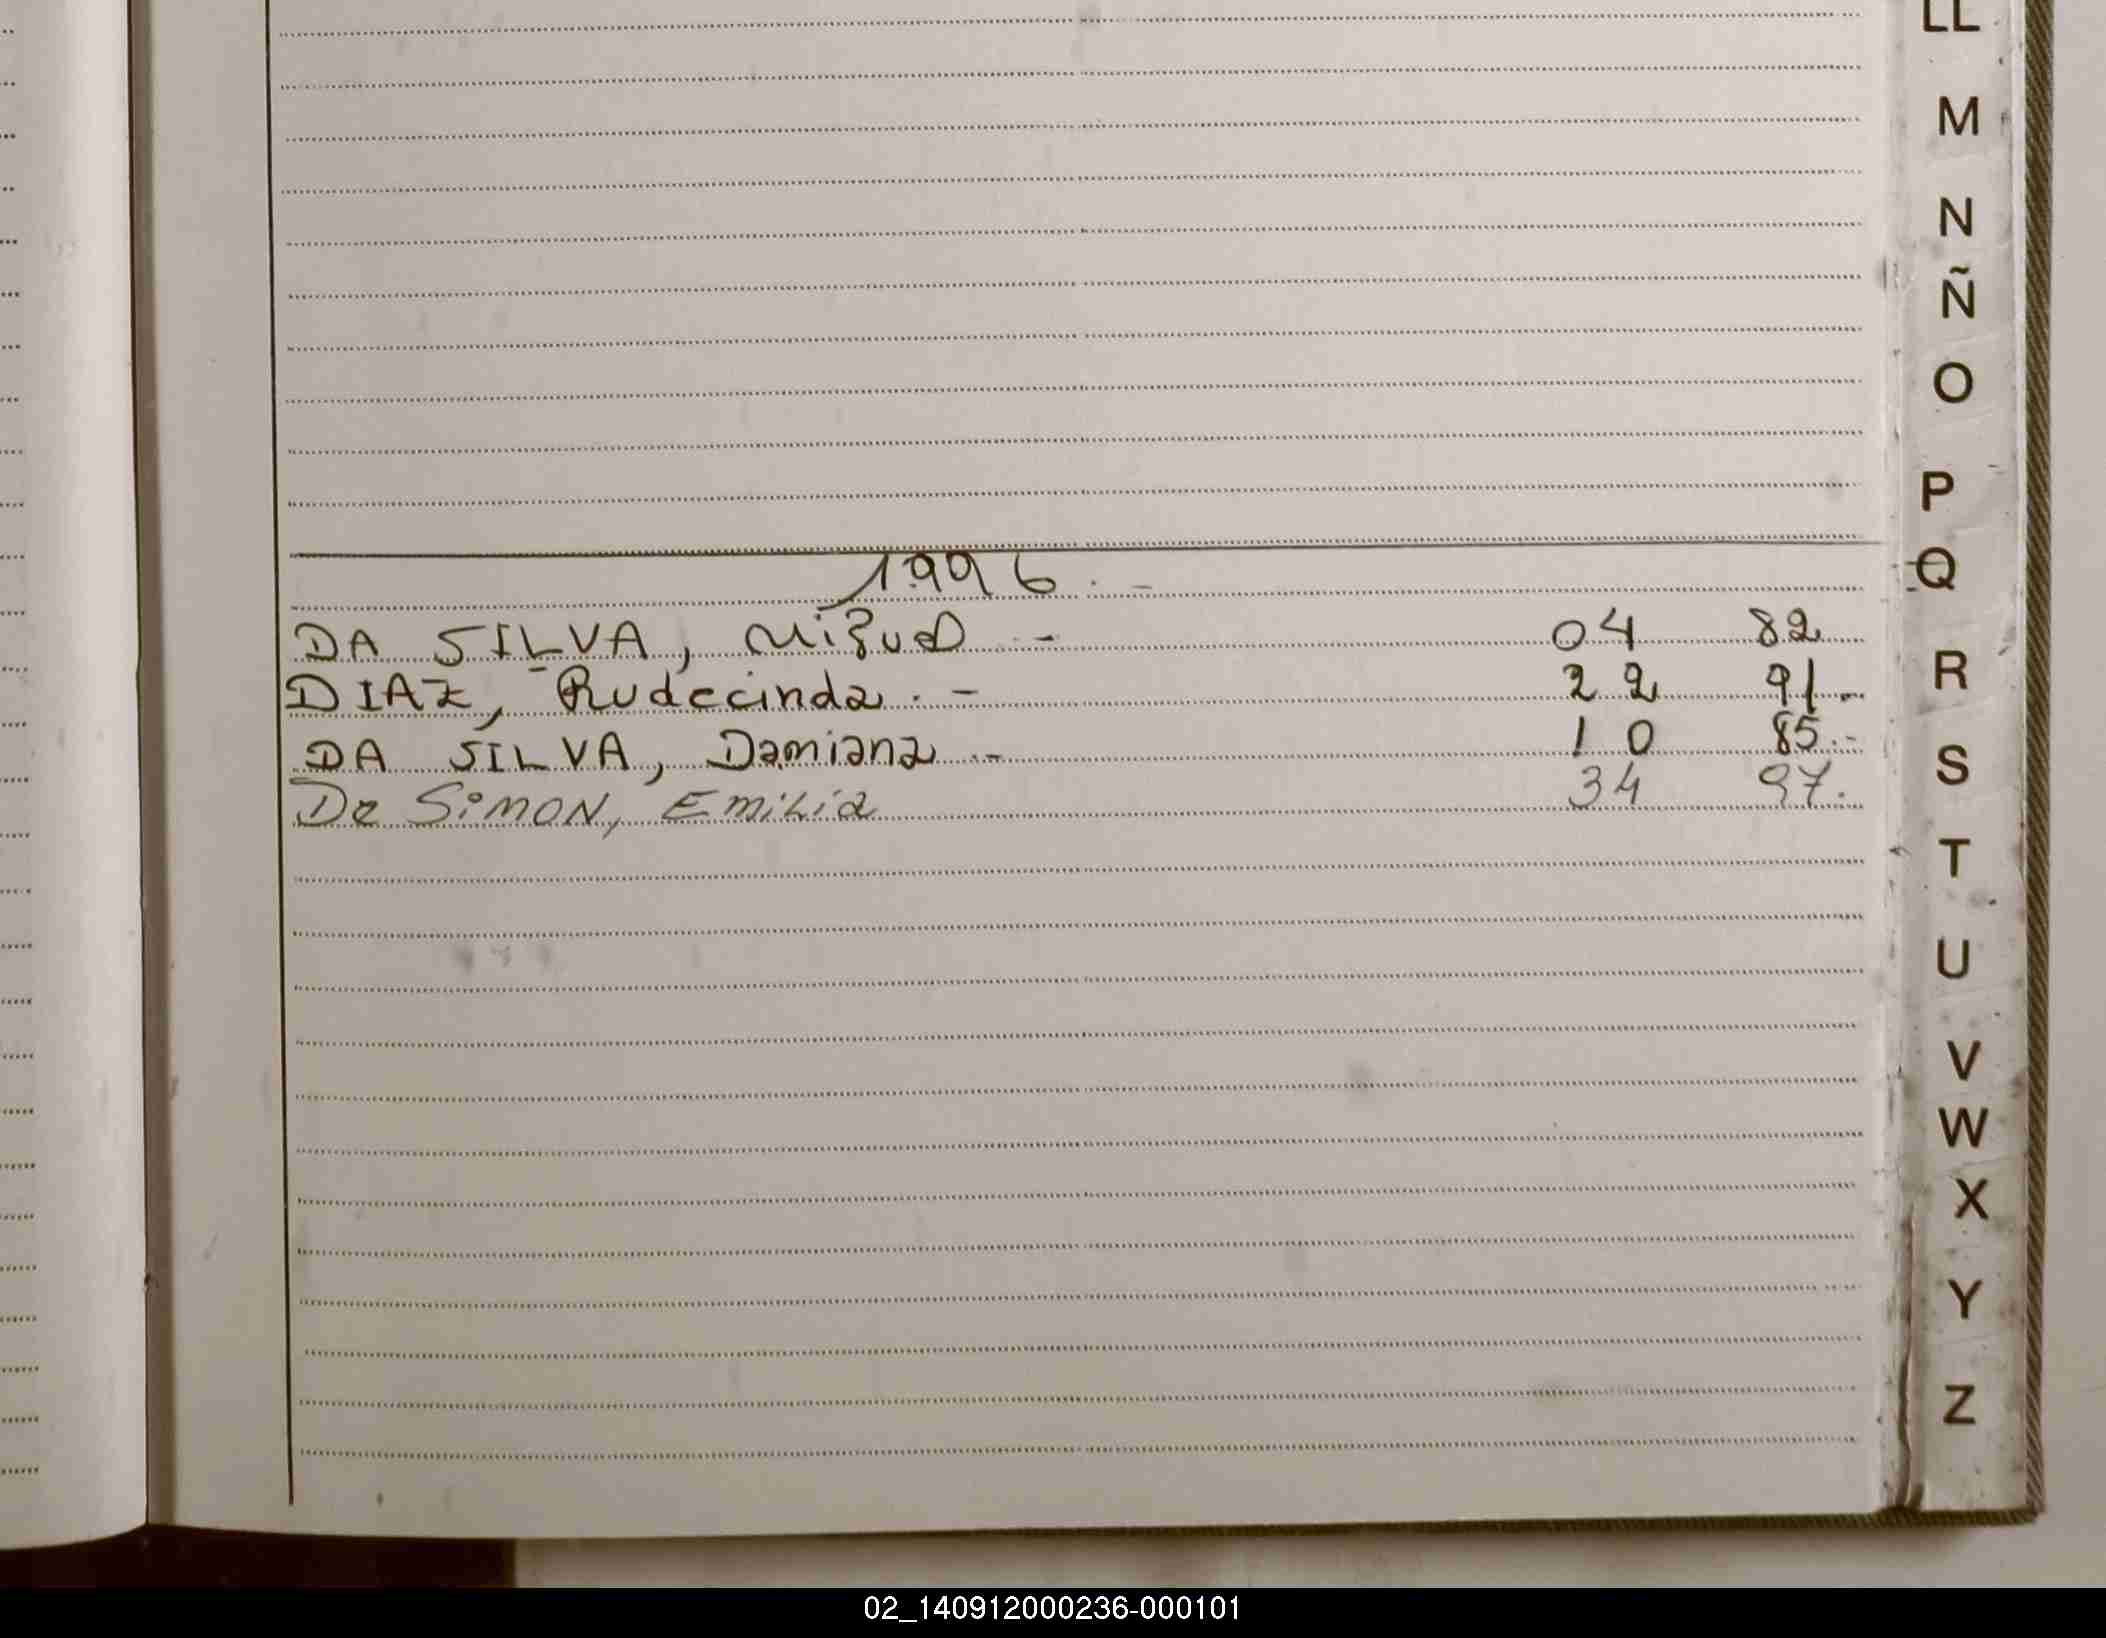 1996.-
DA SILVA, Miguel.- 04 82
DIAZ, Rudecinda.- 22 91.-
DA SILVA, Damiana.- 10 85.-
De Simon, Emilia 34 97.
LL
M
N
Ñ
O
P
Q
R
S
T
U
V
W
X
Y
Z
02_140912000236-000101